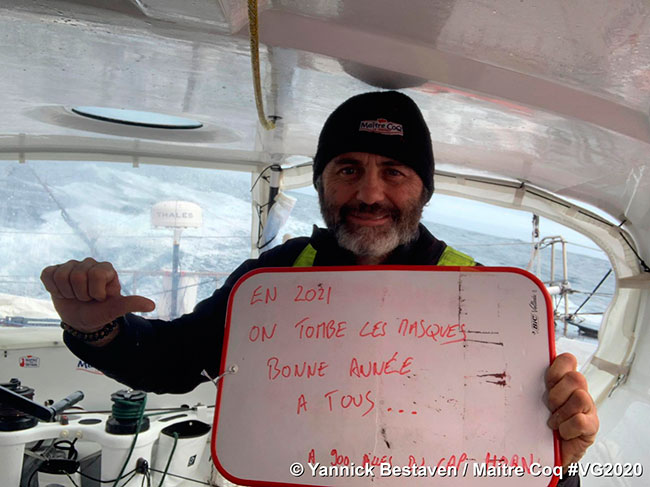 Maître CoQ
THALES
EN 2021
ON TOMBE LES MASQUES
BONNE ANNÉE
A TOUS...
A 900 MILLES DU CAP-HORN
© Yannick Bestaven / Maître Coq #VG2020